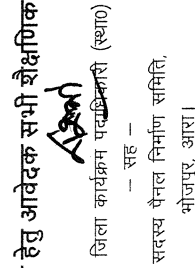 हेतु आवेदक सभी शैक्षणिक
जिला कार्यक्रम पदाधिकारी (स्था०)
– सह –
सदस्य पैनल निर्माण समिति,
भोजपुर, आरा।